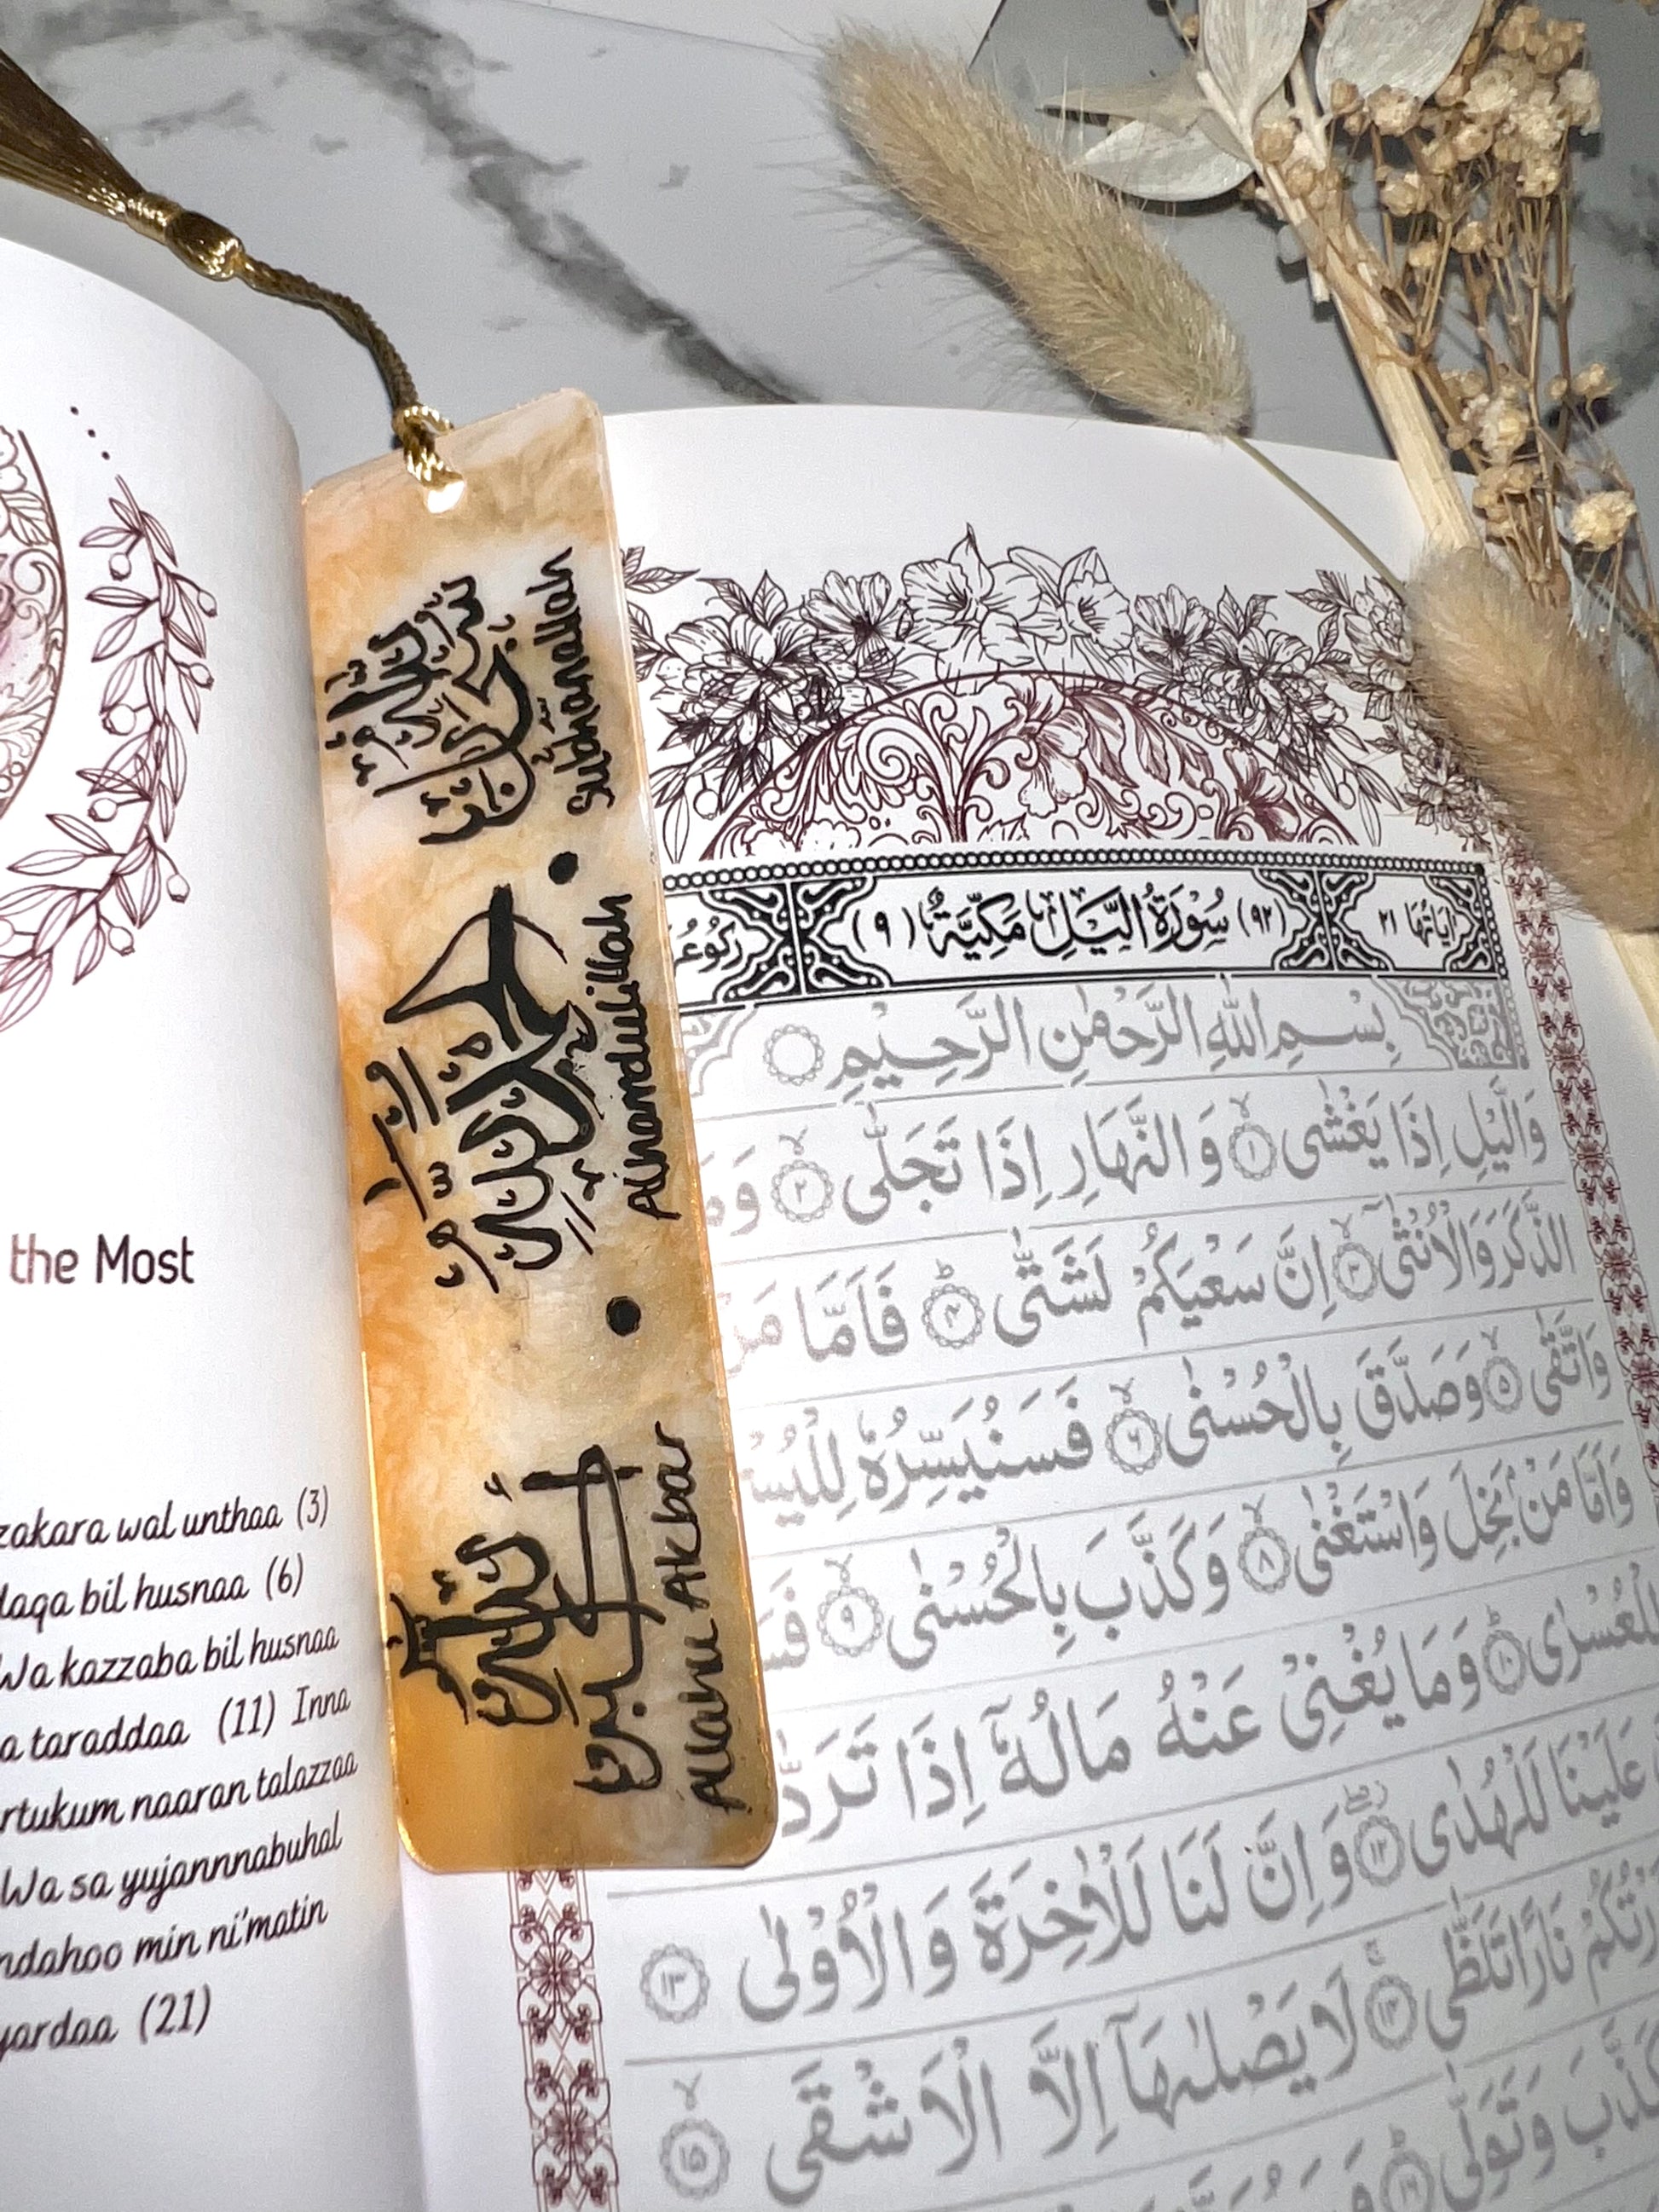 the Most
zakara wal unthaa (3)
daqa bil husnaa (6)
Wa kazzaba bil husnaa
a taraddaa (11) Inna
rtukum naaran talazzaa
Wa sa yujannnabuhal
ndahoo min ni'matin
yardaa (21)
سبحان الله
Subhanallah
الحمد لله
Alhamdulillah
الله أكبر
Allahu Akbar
اٰيَاتُهَا ٢١ (٩٢) سُوْرَةُ الَّيْلِ مَكِّيَّةٌ (٩)
بِسْمِ اللهِ الرَّحْمٰنِ الرَّحِيْمِ
وَالَّيْلِ اِذَا يَغْشٰى ١ وَ النَّهَارِ اِذَا تَجَلّٰى ٢
الذَّكَرَ وَالْاُنْثٰٓى ٣ اِنَّ سَعْيَكُمْ لَشَتّٰى ٤ فَاَمَّا مَنْ
وَاتَّقٰى ٥ وَصَدَّقَ بِالْحُسْنٰى ٦ فَسَنُيَسِّرُهٗ
وَاَمَّا مَنْۢ بَخِلَ وَاسْتَغْنٰى ٨ وَ كَذَّبَ بِالْحُسْنٰى ٩
لِلْعُسْرٰى ١٠ وَمَا يُغْنِيْ عَنْهُ مَالُهٗٓ اِذَا تَرَدّٰى
عَلَيْنَا لَلْهُدٰى ١٢ وَ اِنَّ لَنَا لَلْاٰخِرَةَ وَ الْاُوْلٰى ١٣
نَارًا تَلَظّٰى ١٤ لَا يَصْلٰىهَآ اِلَّا الْاَشْقَى ١٥
كَذَّبَ وَتَوَلّٰى ١٦